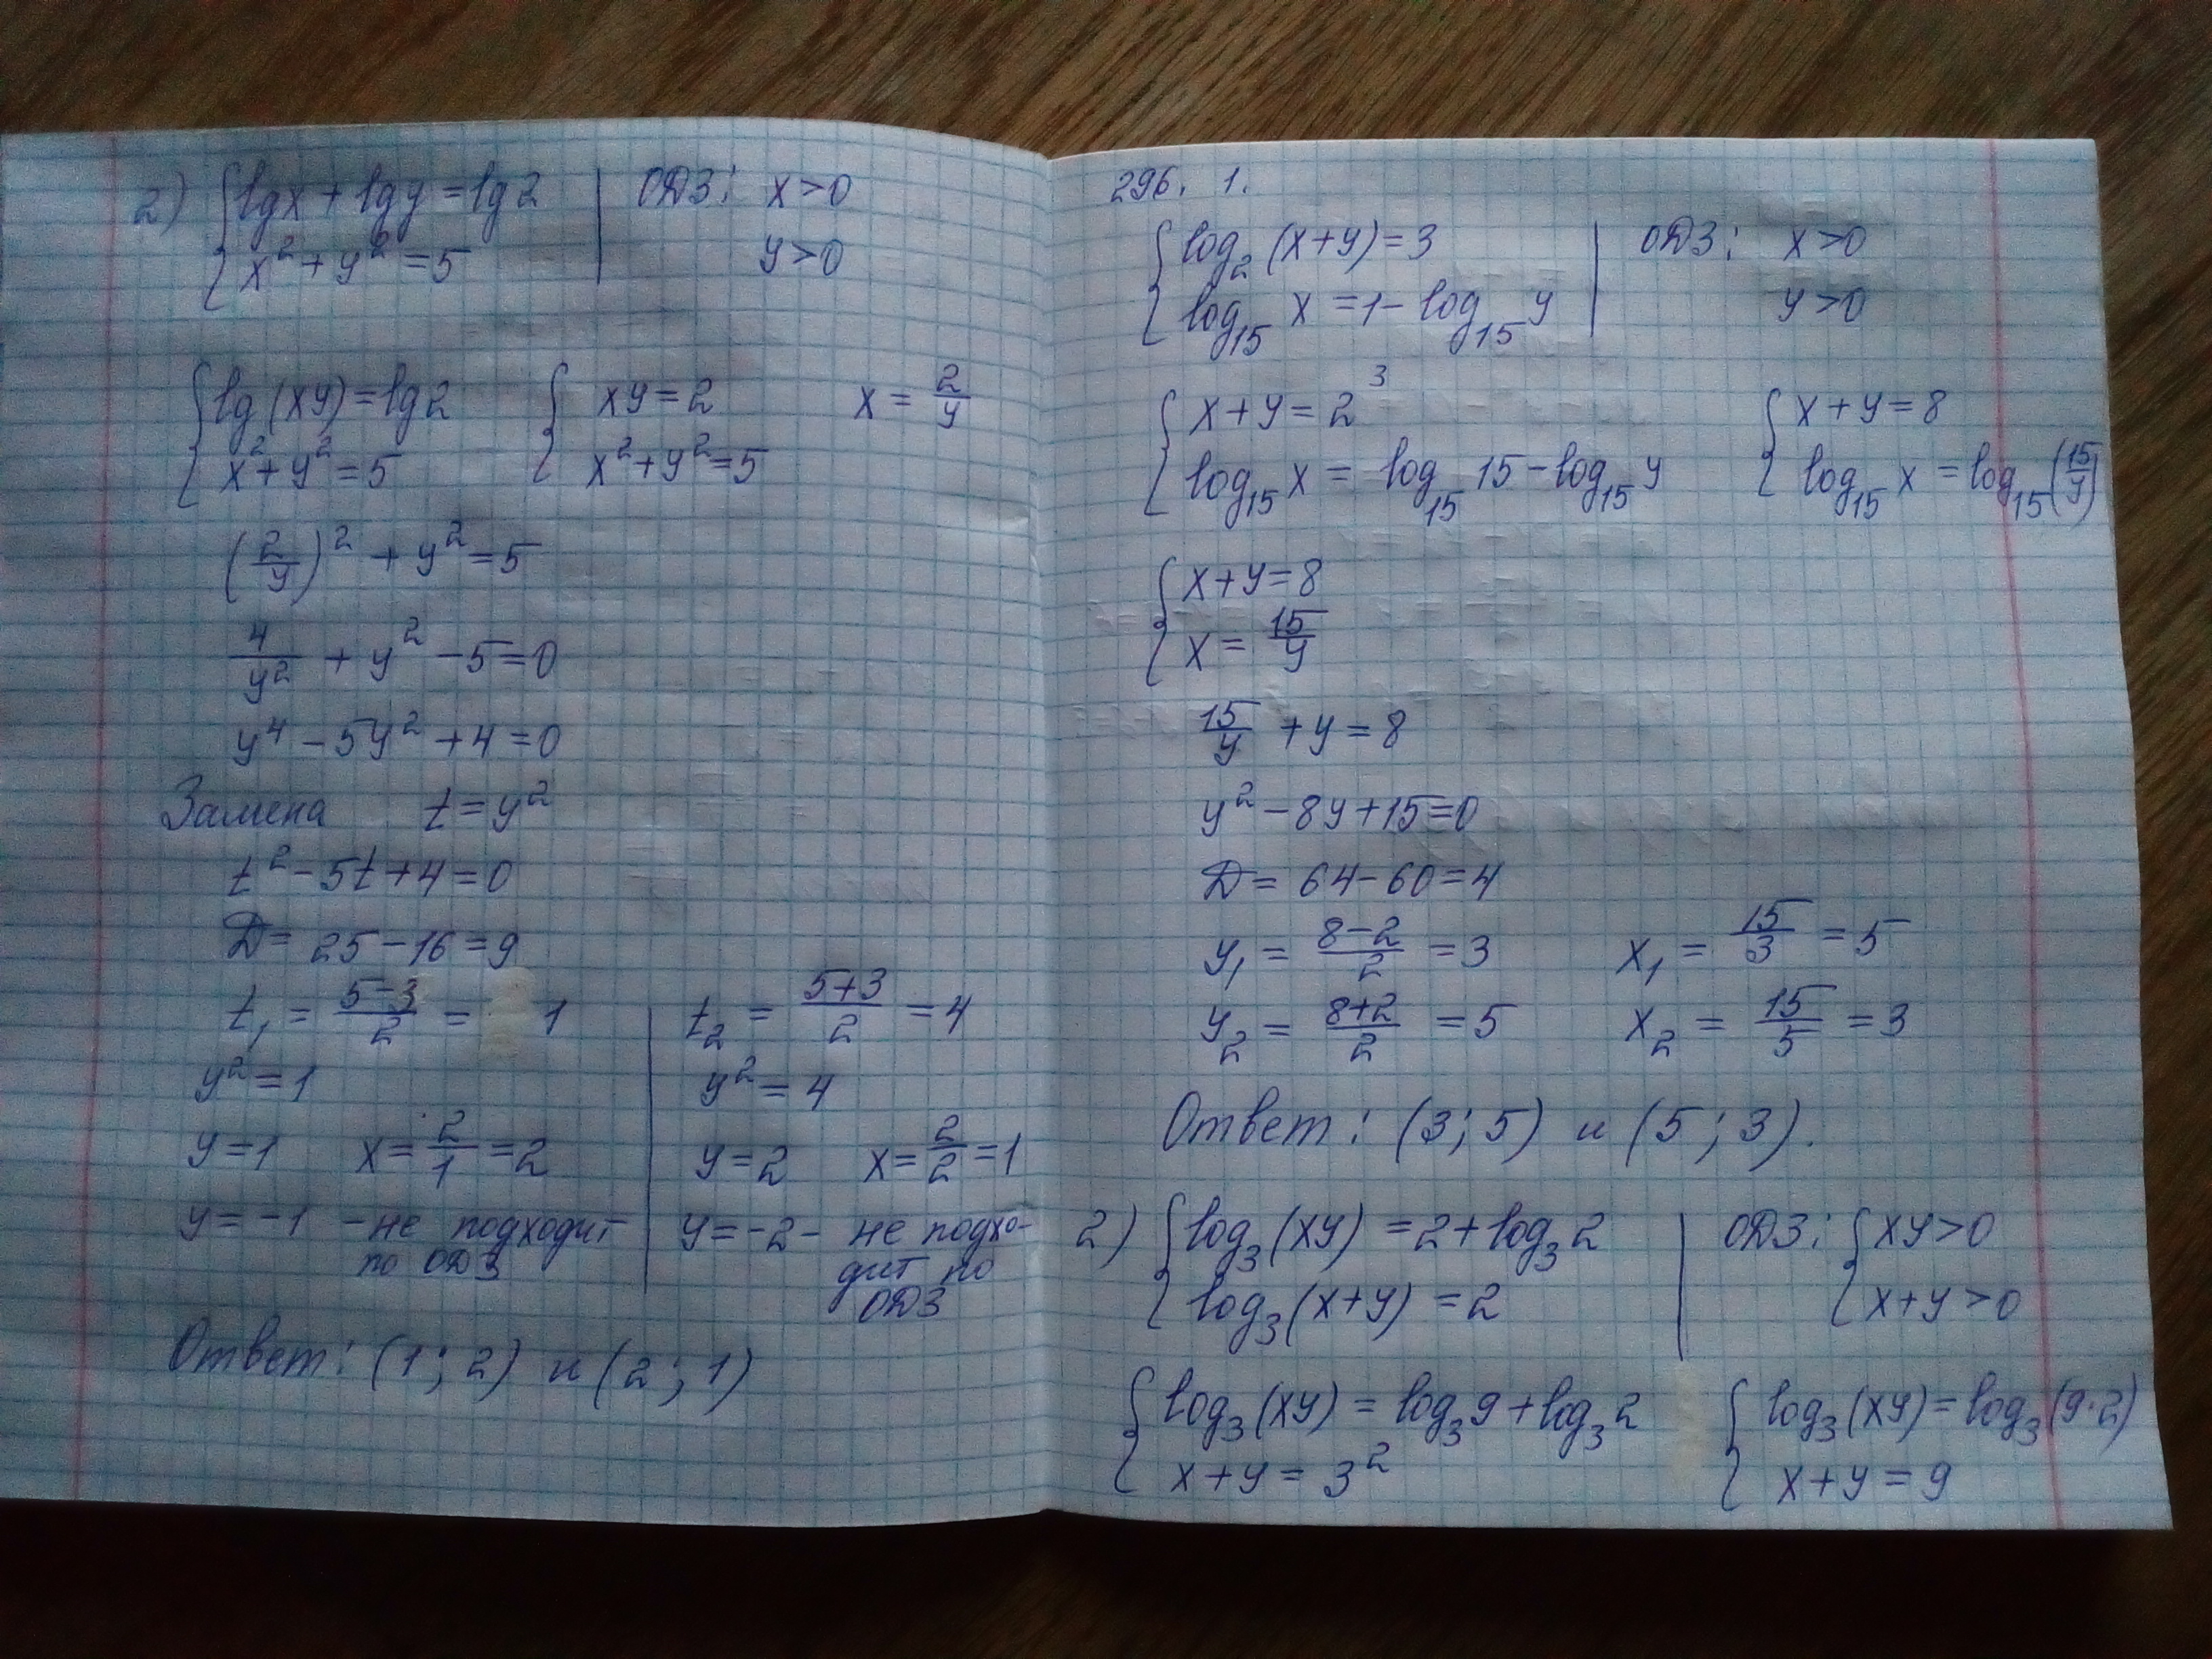 2) { lg x + lg y = lg 2 | ОДЗ: x > 0
{ x² + y² = 5 | y > 0
{ lg (xy) = lg 2 { xy = 2 x = 2/y
{ x² + y² = 5 { x² + y² = 5
(2/y)² + y² = 5
4/y² + y² - 5 = 0
y⁴ - 5y² + 4 = 0
Замена t = y²
t² - 5t + 4 = 0
D = 25 - 16 = 9
t₁ = (5-3)/2 = 1 | t₂ = (5+3)/2 = 4
y² = 1 | y² = 4
y = 1 x = 2/1 = 2 | y = 2 x = 2/2 = 1
y = -1 - не подходит | y = -2 - не подхо-
по ОДЗ | дит по
ОДЗ
Ответ: (1; 2) и (2; 1)
296. 1.
{ log₂ (x+y) = 3 | ОДЗ: x > 0
{ log₁₅ x = 1 - log₁₅ y | y > 0
{ x + y = 2³ { x + y = 8
{ log₁₅ x = log₁₅ 15 - log₁₅ y { log₁₅ x = log₁₅ (15/y)
{ x + y = 8
{ x = 15/y
15/y + y = 8
y² - 8y + 15 = 0
D = 64 - 60 = 4
y₁ = (8-2)/2 = 3 x₁ = 15/3 = 5
y₂ = (8+2)/2 = 5 x₂ = 15/5 = 3
Ответ: (3; 5) и (5; 3).
2) { log₃ (xy) = 2 + log₃ 2 | ОДЗ: { xy > 0
{ log₃ (x+y) = 2 | { x + y > 0
{ log₃ (xy) = log₃ 9 + log₃ 2 { log₃ (xy) = log₃ (9·2)
{ x + y = 3² { x + y = 9